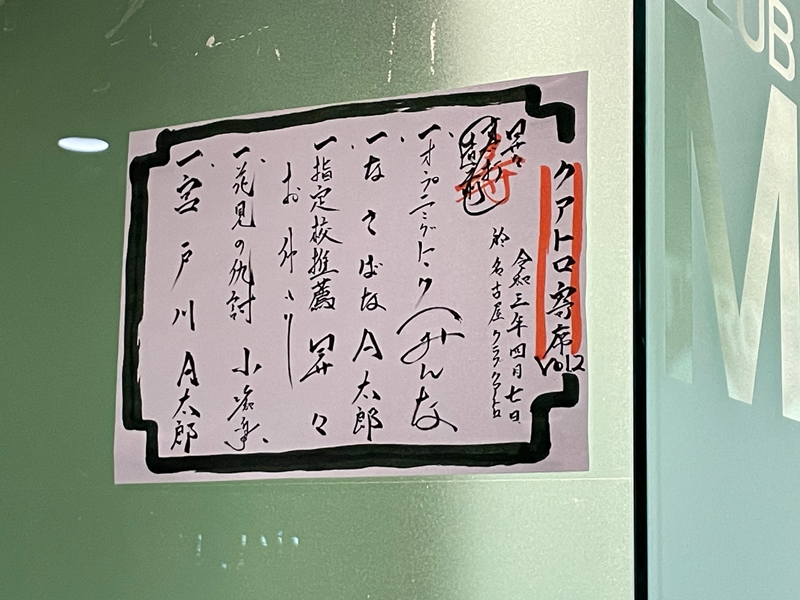 クアトロ寄席
Vol2
令和三年四月七日
於 名古屋クラブクアトロ
昇々
一、オープニングトーク みんな
一、なさばな A太郎
一、指定校推薦 昇々
お仲入り
一、花見の仇討 小痴楽
一、宮戸川 A太郎
UB
M